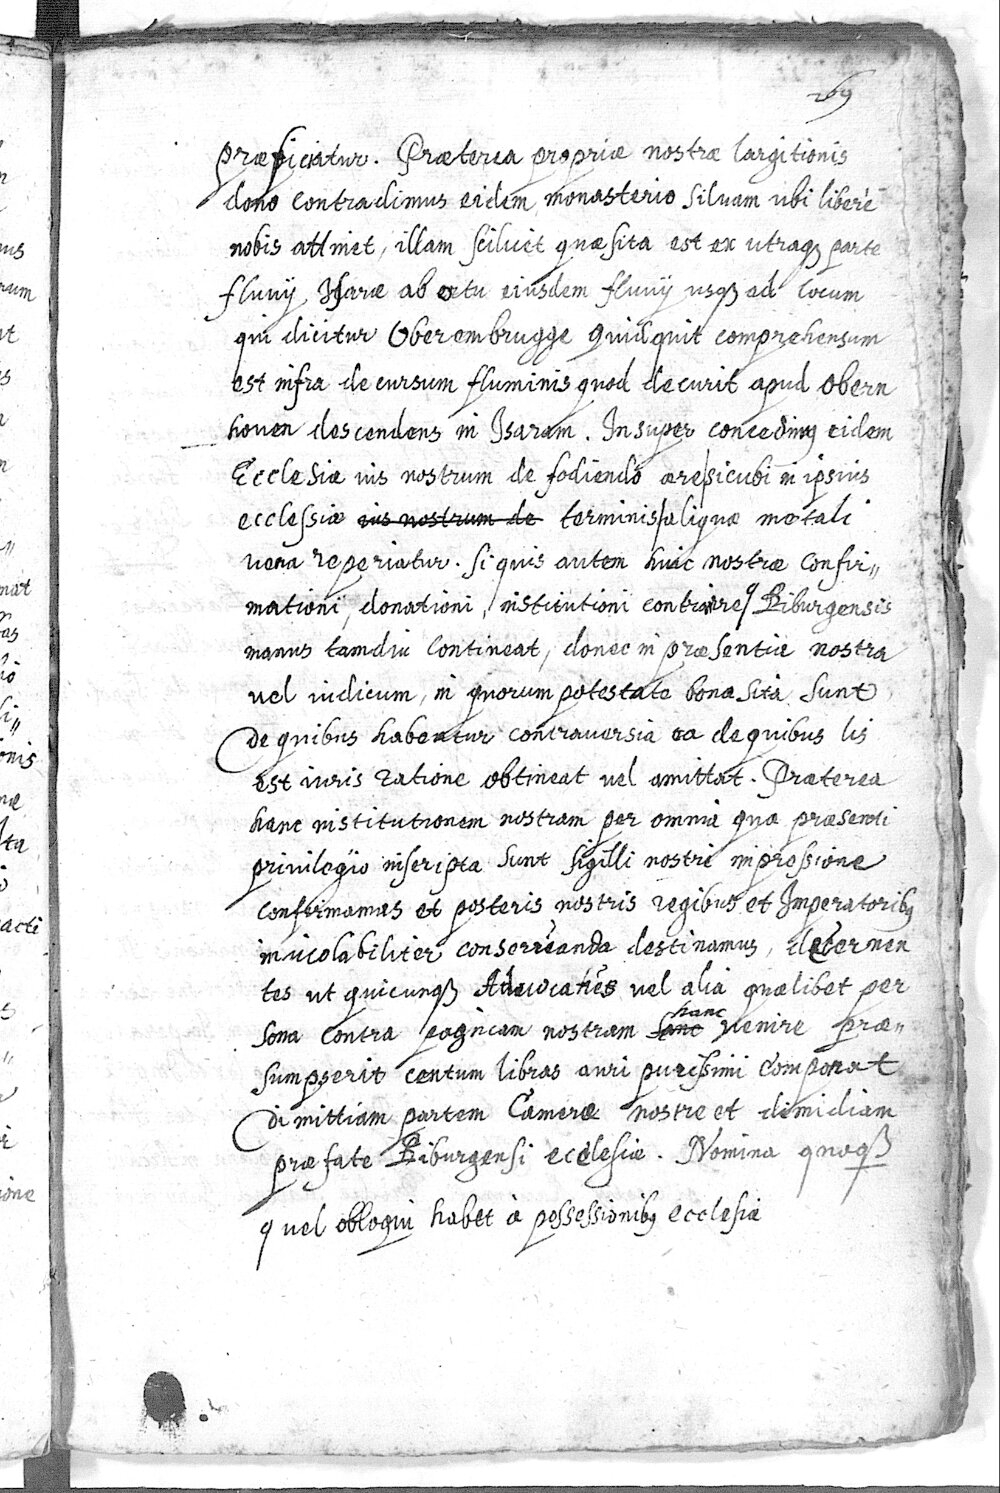 269
præficiatur. Præterea propriæ nostræ largitionis
dono contradimus eidem monasterio siluam ubi liberè
nobis attinet, illam scilicet quæ sita est ex utraq3 parte
fluuij Isaræ ab ortu eiusdem fluuij usq3 ad locum
qui dicitur Oberembrugge quidquit comprehensum
est infra decursum fluminis quod decurit apud obern
houen descendens in Isaram. Insuper concedim9 eidem
Ecclesiæ ius nostrum de fodiendo ære sicubi in ipsius
ecclessiæ ius nostrum de terminis aliquæ metali
uena reperiatur. si quis autem huic nostræ confir„
mationi, donationi, institutioni contraire Biburgensis
manus tamdiu contineat, donec in præsentia nostra
uel iudicum, in quorum potestate bona sita sunt
de quibus habentur contrauersia ea de quibus lis
est iuris ratione obtineat uel amittat. Præterea
hanc institutionem nostram per omnia quæ præsenti
priuilegio inscripta sunt sigilli nostri impressione
confirmamas et posteris nostris regibus et Imperatorib9
inuiolabiliter conseruanda destinamus, decernen
tes ut quicunq3 Aduocatus uel alia quælibet per
sona contra paginam nostram hanc uenire præ„
sumpserit centum libras auri purissimi componat
dimittiam partem Cameræ nostre et dimidiam
præfate Biburgensi ecclesiæ. Nomina quoq3
q uel obloqui habet à possessionib9 ecclesiæ